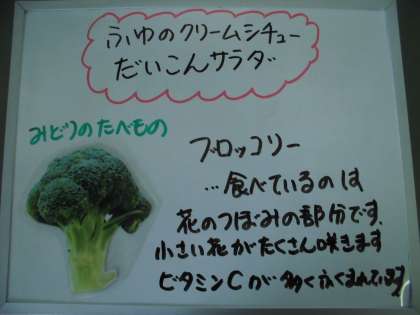 ふゆのクリームシチュー
だいこんサラダ
みどりのたべもの
ブロッコリー
…食べているのは
花のつぼみの部分です。
小さい花がたくさん咲きます
ビタミンCが多くふくまれています